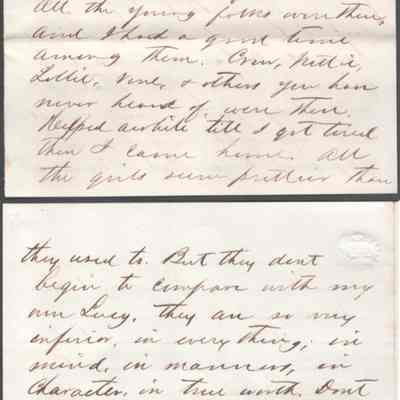 All the young folks were there,
and I had a good time
among them. Crow, Nettie,
Lottie, Vine, & others you have
never heard of were there.
Helped awhile till I got tired
then I came home. All
the girls seem prettier than
they used to. But they dont
begin to compare with my
own Lucy. They are so very
inferior, in everything; in
mind, in manners, in
Character, in true worth. Dont